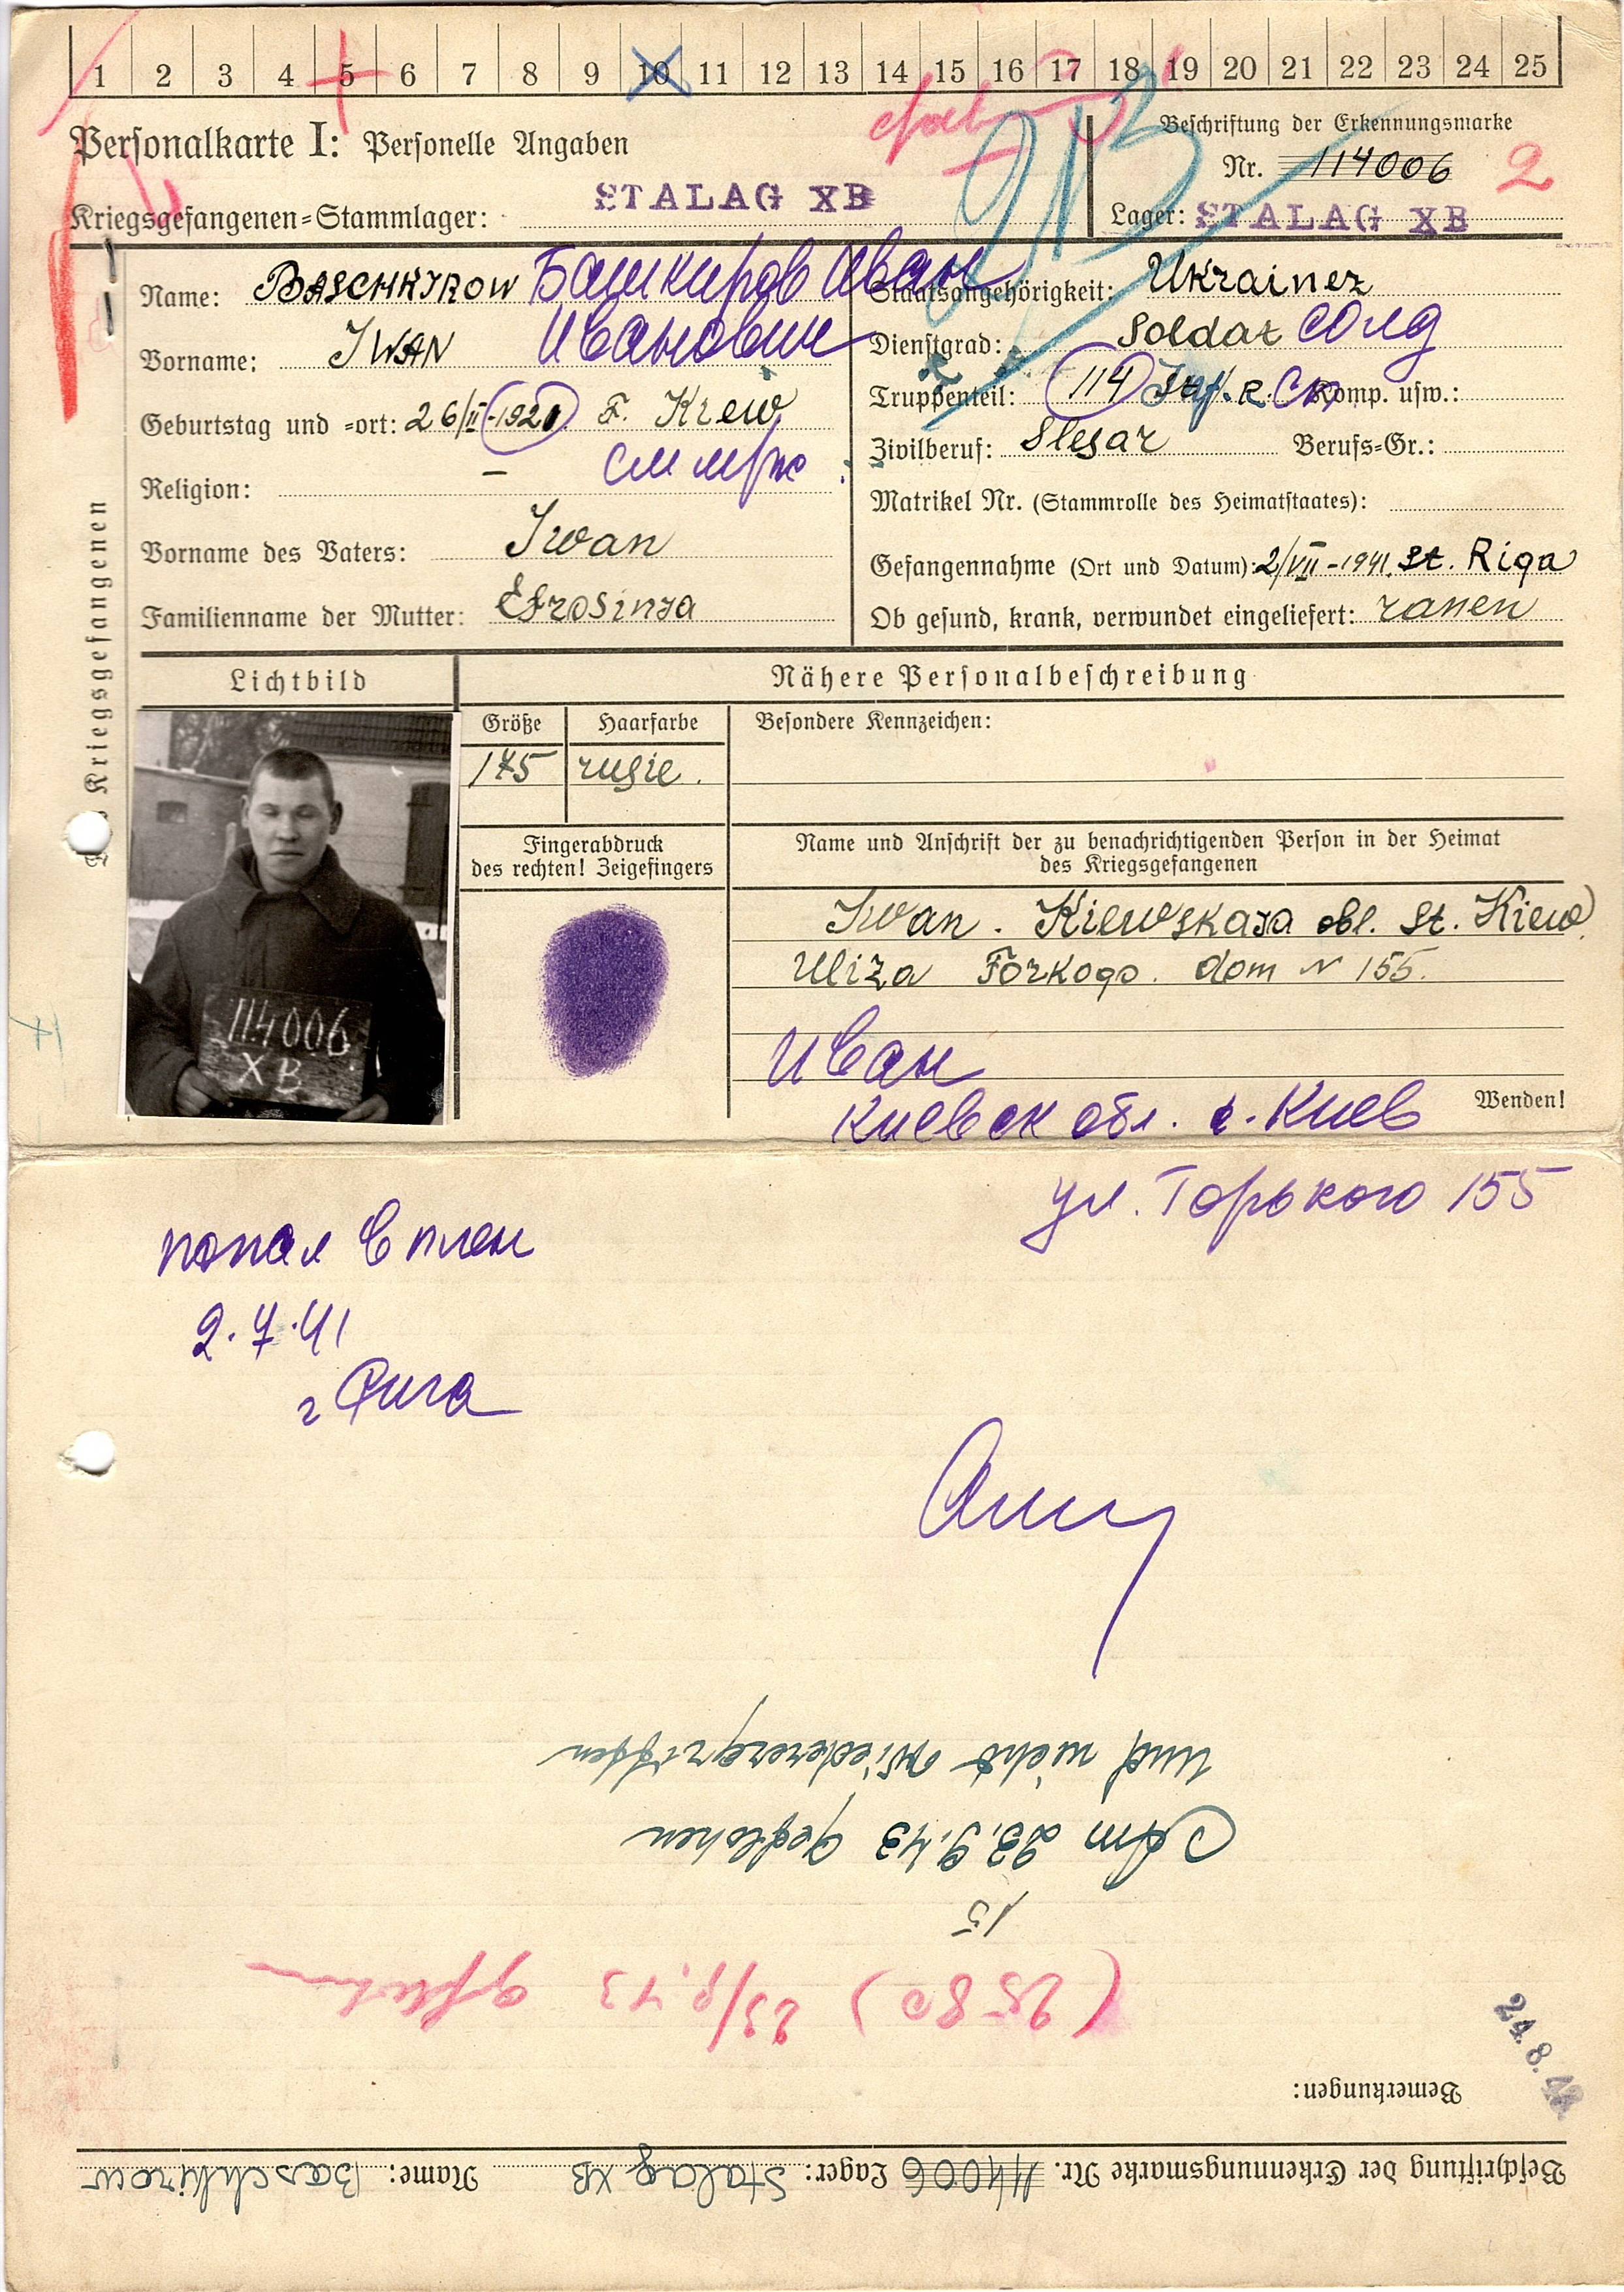 1 2 3 4 5 6 7 8 9 10 11 12 13 14 15 16 17 18 19 20 21 22 23 24 25
Personalkarte I: Personelle Angaben
Beschriftung der Erkennungsmarke
Nr. 114006 2
Kriegsgefangenen=Stammlager: STALAG XB
Lager: STALAG XB
Des Kriegsgefangenen
Name: BASCHKIROW Башкиров Иван
Vorname: IWAN Иванович
Geburtstag und =ort: 26/II-1920 Kiew
Religion: –
Vorname des Vaters: Iwan
Familienname der Mutter: Efrosinja
Staatsangehörigkeit: Ukrainez
Dienstgrad: Soldat солд
Truppenteil: 114 Inf. R. Komp. usw.:
Zivilberuf: Slesar Berufs=Gr.:
Matrikel Nr. (Stammrolle des Heimatstaates):
Gefangennahme (Ort und Datum): 2/VII-1941. St. Riga
Ob gesund, krank, verwundet eingeliefert: ranen
Lichtbild
Nähere Personalbeschreibung
Größe Haarfarbe Besondere Kennzeichen:
175 rusie.
114006
XB
Fingerabdruck
des rechten! Zeigefingers
Name und Anschrift der zu benachrichtigenden Person in der Heimat
des Kriegsgefangenen
Iwan. Kiewskaja obl. St. Kiew
Uliza Forkogo. dom N 155.
Иван
Киевск обл. г. Киев
Wenden!
ул. Горького 155
попал в плен
2.7.41
г Рига
Beschriftung der Erkennungsmarke Nr. 114006 Lager: Stalag XB Name: Baschkirow
Bemerkungen:
24.8.
(2580) 23/9.43 geflohen
15
Am 23.9.43 geflohen
und nicht wiederergriffen